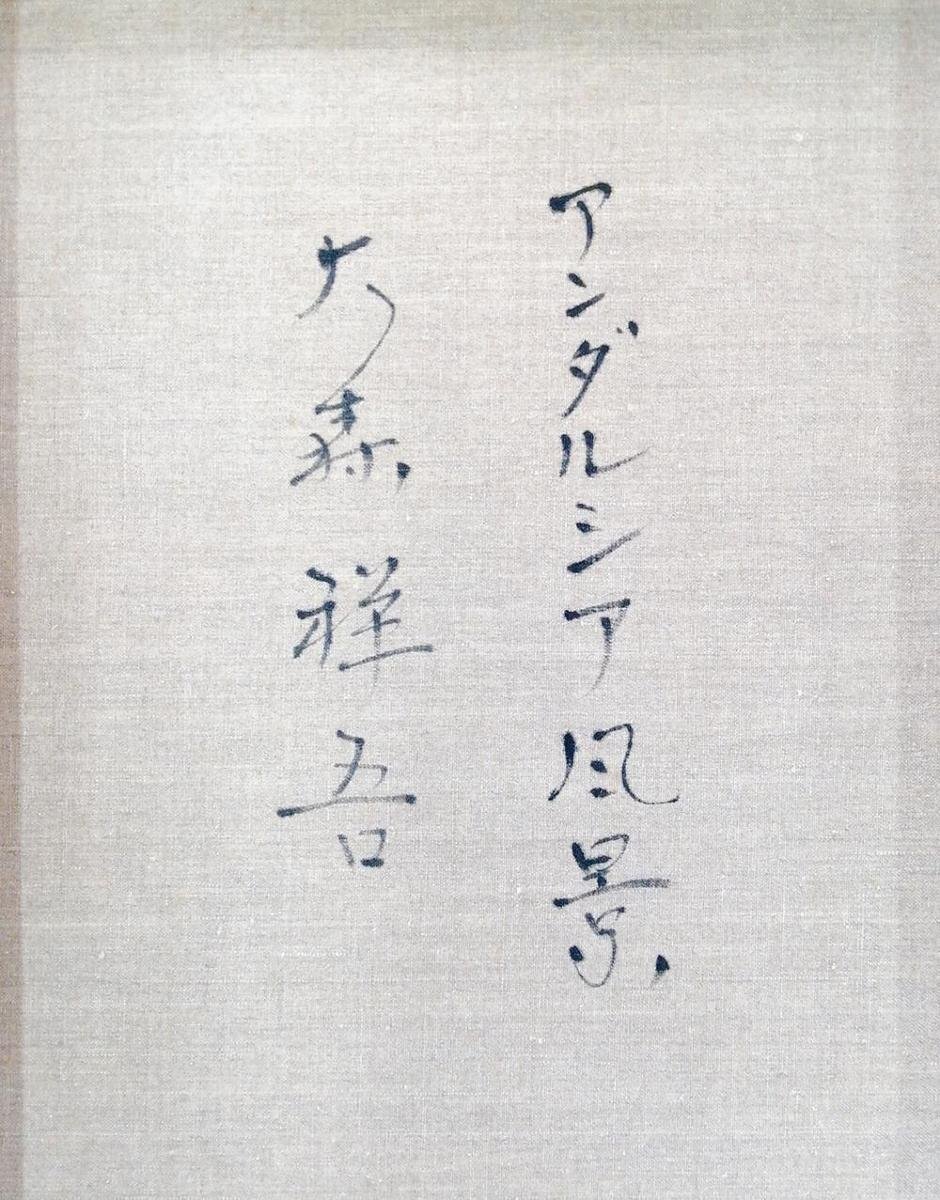 アンダルシア風景
大森祥吾